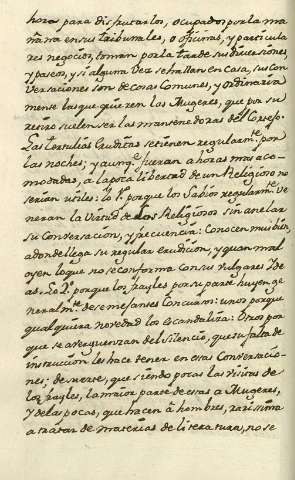 hora para disfrutarlos, ocupados por la ma
ñana en sus tribunales, ò oficinas, y particula
res negocios, toman por la tarde sus diversiones
y paseos, y si alguna vez se hallan en casa, sus con
versaciones son de cosas comunes, y ordinaria
mente las que quieren las Mugeres, que por su
recreo suelen ser las mantenedoras del
Las tertulias eruditas se tienen regularm.te por
las noches; y aunq.e fueran a horas mas aco
modadas, a la poca libertad de un Religioso no
serian utiles: lo 1.º porque los Sabios regularm.te ve
neran la virtud de los Religiosos sin anelar
su conversacion, y frecuencia: Conocen mui bien
adonde llega su regular erudicion, y quan mal
oyen lo que no se conforma con sus vulgares Yde
as. Lo 2.º porque los frayles por su parte huyen ge
neralm.te de semejantes Concursos: unos porque
qualquiera novedad los escandaliza: Otros por
que se averguenzan del silencio, que su falta de
instruccion les hace tener en estas Conversacio
nes; de suerte, que siendo pocas las visitas de
los frayles, la maior parte de estas a Mugeres,
y de las pocas, que hacen à hombres, rarisima
a tratar de materias de literatura, no se